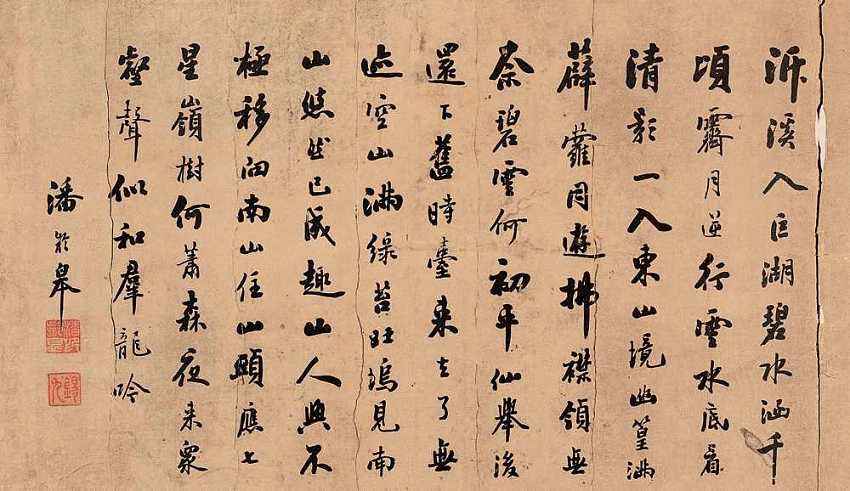 泝溪入巨湖碧水涵千
頃霽月逆行雲水底看
清影一入東山境幽篁滿
薜蘿同遊拂襟領無
奈碧雲何初平仙舉後
還下舊時臺來去了無
迹空山滿綠苔旺塢見南
山悠然已成趣山人興不
極移向南山住山頭應七
星嶺樹何蕭森夜來眾
壑聲似和羣龍吟
潘齡皋